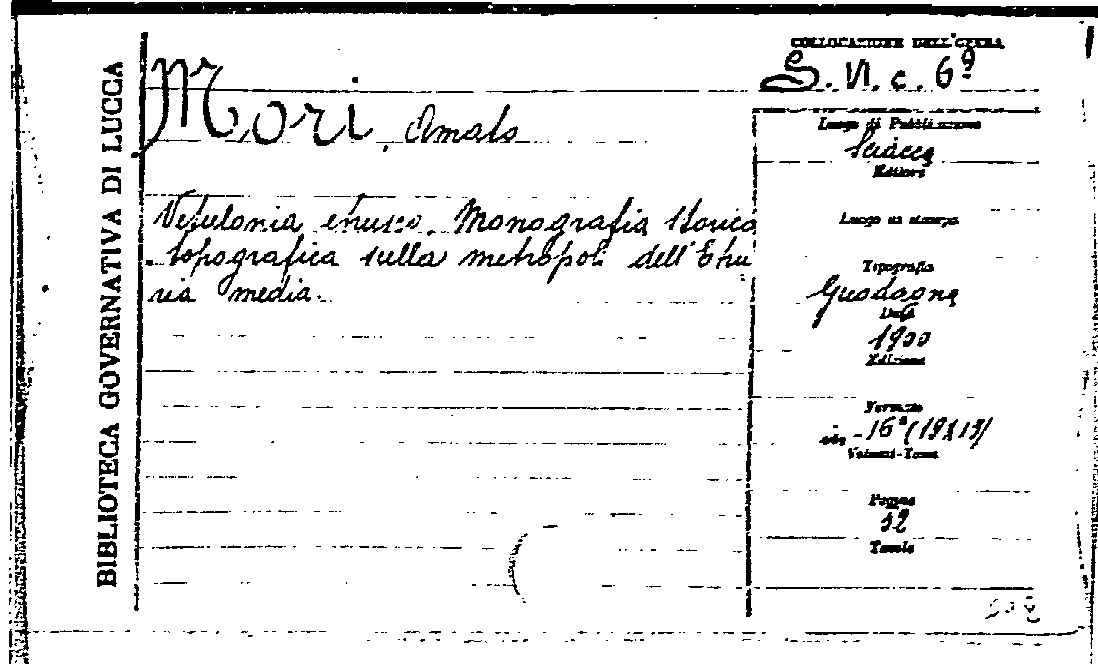 BIBLIOTECA GOVERNATIVA DI LUCCA
COLLOCAZIONE DELL'OPERA
S. VI. c. 69
Mori, Amato
Vetulonia etrusca. Monografia storico
topografica sulla metropoli dell'Etru
ria media.
Luogo di Pubblicazione
Sciacca
Editore
Luogo di stampa
Tipografia
Guadagna
Data
1900
Edizione
Formato
in-16° (19x13)
Volumi-Tomi
Pagine
52
Tavole